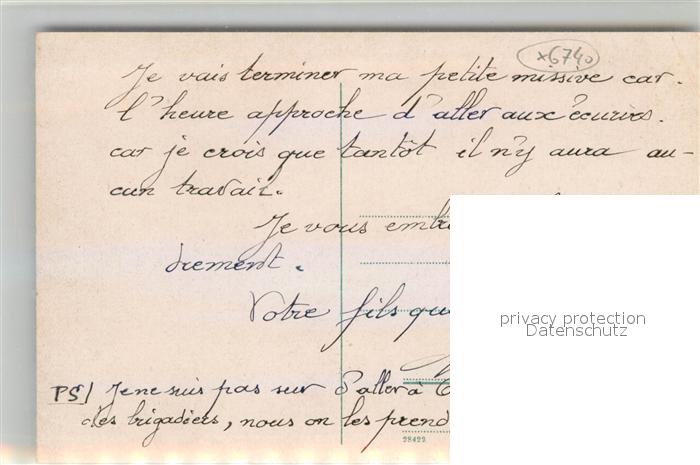 x6740
Je vais terminer ma petite missive car.
l'heure approche d'aller aux écuries.
car je crois que tantôt il n'y aura au-
cun travail.
Je vous
drement.
Votre fils
privacy protection
Datenschutz
PS/ Je ne suis pas sur d'aller à
des brigadiers, nous on les prend
28422